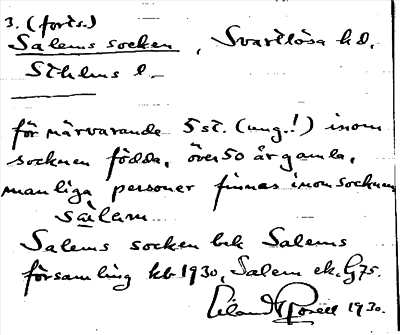 3. (forts.)
Salems socken, Svartlösa hd,
Sthlms l.
för närvarande 5 st. (ung.!) inom
socknen födda, över 50 år gamla,
manliga personer finnas inom socknen
salam
Salems socken lik Salems
församling kb 1930, Salem ek. G75.
1930.